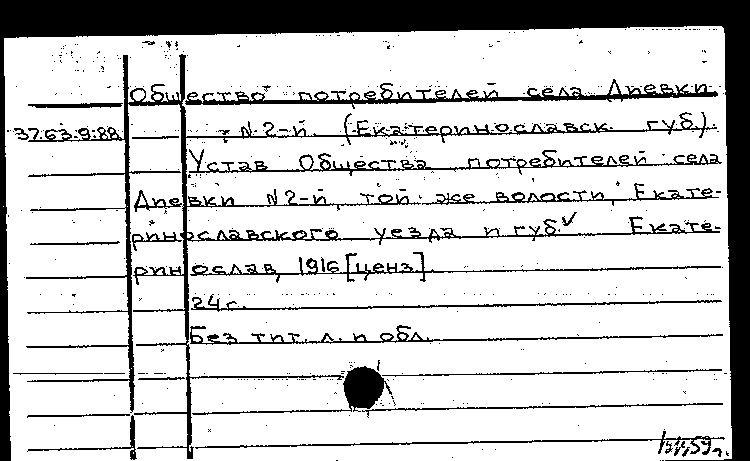 Общество потребителей села Диевки
37.63.9.88 № 2-й. (Екатеринославск. губ.).
Устав Общества потребителей села
Диевки № 2-й, той же волости, Екате-
ринославского уезда и губ. Екате-
ринослав, 1916 [ценз].
24 с.
Без тит. л. и обл.